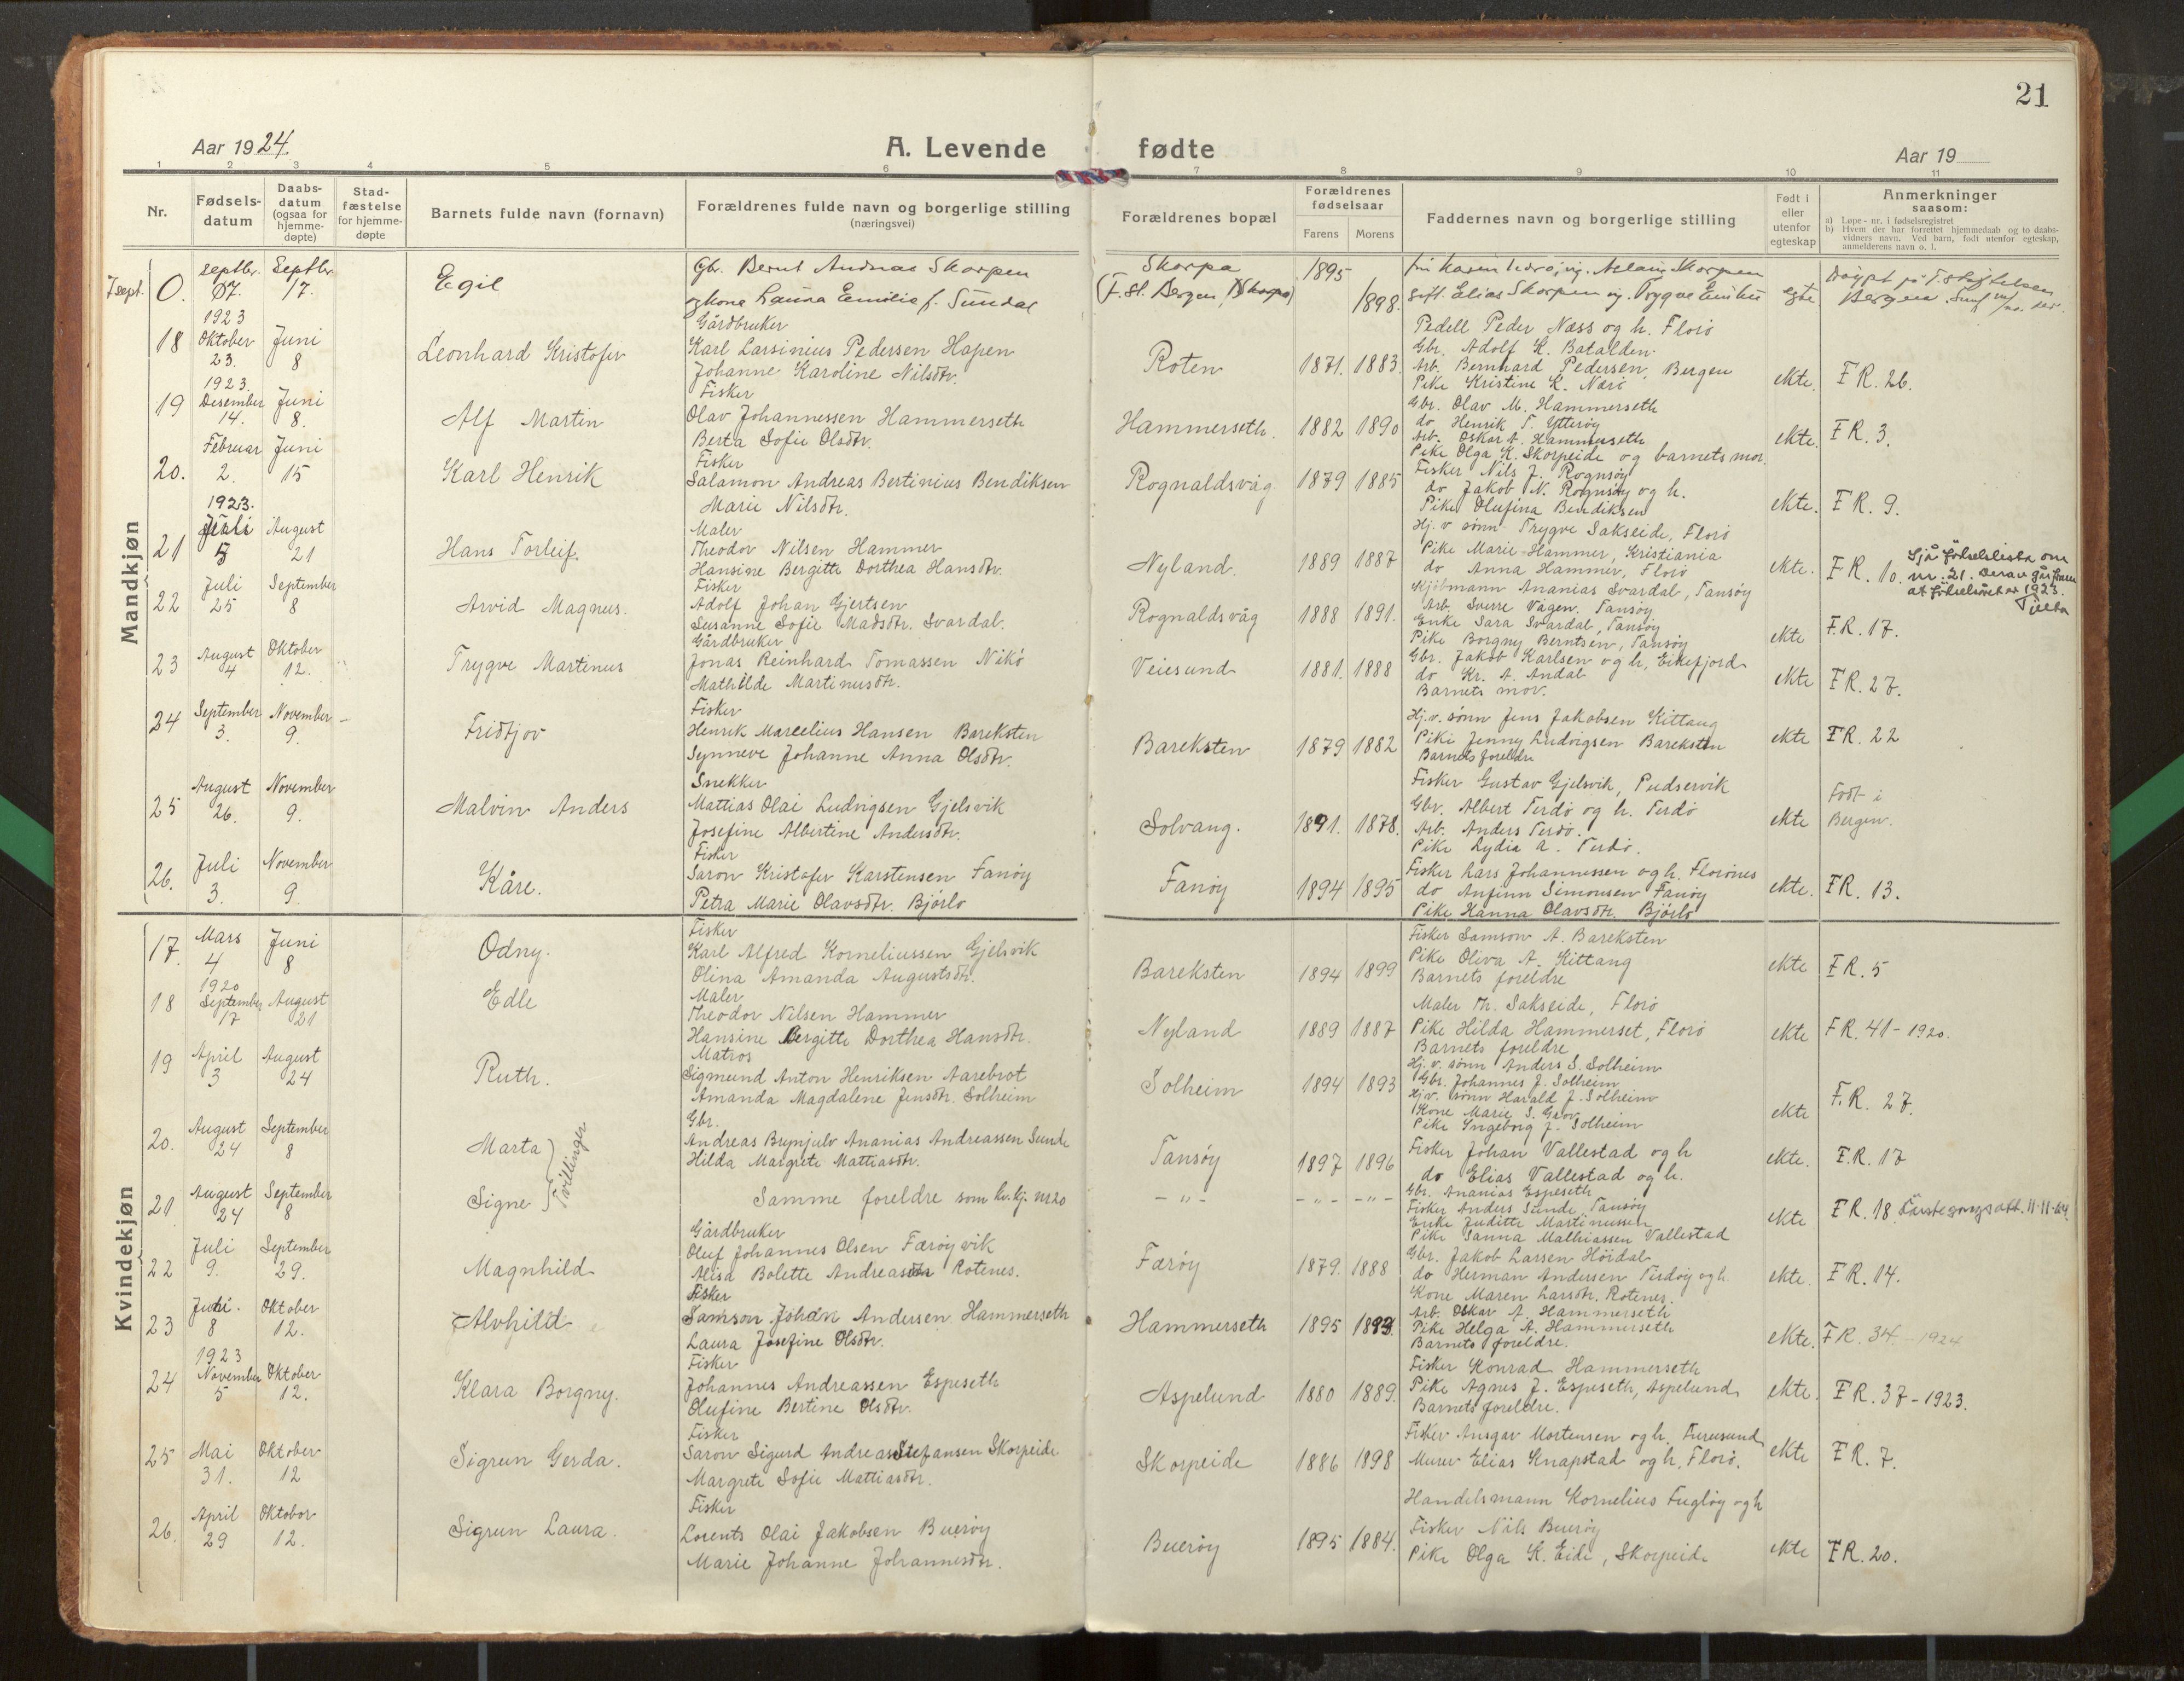 21
Aar 1924.
A. Levende fødte
Aar 19
1 2 3 4 5 6 7 8 9 10 11
Nr.
Fødsels-datum
Daabs-datum (ogsaa for hjemme-døpte)
Stad-fæstelse for hjemme-døpte
Barnets fulde navn (fornavn)
Forældrenes fulde navn og borgerlige stilling (næringsvei)
Forældrenes bopæl
Forældrenes fødselsaar
Farens Morens
Faddernes navn og borgerlige stilling
Født i eller utenfor egteskap
Anmerkninger saasom:
a) Løpe-nr. i fødselsregistret
b) Hvem der har forrettet hjemmedaab og to daabs-vidners navn. Ved barn, født utenfor egteskap, anmelderens navn o. l.
Mandkjøn
7 sept. 0. Septbr. 07. Septbr. 17.
Egil
Gbr. Bernt Andreas Skorpen
og kone Laura Emilie f. Sundal
Skorpa
(F. st. Bergen, Skorpa)
1895 1898.
Elias Skorpen
egte
Bergen
18 1923 Oktober 23. Juni 8
Leonhard Kristofer
Gårdbruker
Karl Larsinius Pedersen Hapen
Johanne Karoline Nilsdtr.
Roten 1871. 1883.
Pedell Peder Næss og h. Florö
Gbr. Adolf K. Batalden.
Arb. Bernhard Pedersen, Bergen
Pike Kristine K. Nærö
ekte. F R. 26.
19 1923. Desember 14. Juni 8.
Alf Martin
Fisker
Olav Johannessen Hammerseth
Berta Sofie Olsdtr.
Hammerseth. 1882 1890
Gbr. Olav M. Hammerseth
do Henrik T. Ytteröy
Arb. Oskar A. Hammerseth
Pike Olga K. Skorpeide og barnets mor.
ekte. F R. 3.
20. Februar 2. Juni 15
Karl Henrik
Fisker
Salamon Andreas Bertinius Bendiksen
Marie Nilsdtr.
Rognaldsvåg 1879 1885
Fisker Nils J. Rognsöy
do Jakob N. Rognsöy og h.
Pike Olufina Bendiksen
ekte. F R. 9.
21 1923. Juli 5 August 21
Hans Torleif.
Maler
Theodor Nilsen Hammer
Hansine Bergitte Dorthea Hansdtr.
Nyland. 1889 1887
Hj. v sönn Trygve Sakseide, Florö
Pike Marie Hammer, Kristiania
do Anna Hammer, Florö
ekte. F R. 10.
Sjå födselslista om
nr. 21. Derav går fram
at födselsåret er 1923.
22 Juli 25 September 8
Arvid Magnus.
Fisker
Adolf Johan Gjertsen
Susanne Sofie Madsdtr. Svardal.
Rognaldsvåg 1888 1891.
Kjöbmann Ananias Svardal, Tansöy
Arb. Sverre Vågen. Tansöy
Enke Sara Svardal, Tansöy
Pike Borgny Berntsen, Tansöy
ekte F.R. 17.
23 August 4 Oktober 12.
Trygve Martinus
Gårdbruker
Jonas Reinhard Tomassen Nikö
Mathilde Martinusdtr.
Veiesund 1881. 1888
Gbr. Jakob Karlsen og h, Eikefjord
do Kr. A. Andal
Barnets mor.
ekte F R. 27.
24 September 3. November 9.
Fridtjov
Fisker
Henrik Marcelius Hansen Bareksten
Synneve Johanne Anna Olsdtr.
Bareksten 1879 1882
Hj. v. sönn Jens Jakobsen Kittang
Pike Jenny Ludvigsen Bareksten
Barnets foreldre
ekte F R. 22
25 August 26. November 9.
Malvin Anders
Snekker
Mattias Olai Ludvigsen Gjelsvik
Josefine Albertine Andersdtr.
Solvang. 1891. 1878.
Fisker Gustav Gjelsvik, Pudservik
Gbr. Albert Terdö og h. Terdö
Arb. Anders Terdö.
Pike Lydia A. Terdö.
ekte Födt i Bergen.
26. Juli 3. November 9
Kåre.
Fisker
Saron Kristofer Karstensen Fanöy
Petra Marie Olavsdtr. Bjórlo
Fanöy 1894 1895
Fisker Lars Johannessen og h. Florönes
do Anfinn Simonsen Fanöy
Pike Hanna Olavsdtr. Bjórlo
ekte. F R. 13.
Kvindekjøn
17. Mars 4 Juni 8
Odny.
Fisker
Karl Alfred Korneliussen Gjelsvik
Olina Amanda Augustsdtr.
Bareksten 1894 1899
Fisker Samson A. Bareksten
Pike Oliva A. Kittang
Barnets foreldre
ekte F R. 5
18 1920 September 17 August 21
Edle
Maler
Theodor Nilsen Hammer
Hansine Bergitte Dorthea Hansdtr.
Nyland 1889 1887
Maler Th. Sakseide, Florö
Pike Hilda Hammerset, Florö
Barnets foreldre
ekte F R. 41 - 1920.
19 April 3 August 24
Ruth.
Matros
Sigmund Anton Henriksen Aarebrot
Amanda Magdalene Jensdtr. Solheim
Solheim 1894 1893
Hj. v. sönn Anders S. Solheim
Gbr. Johannes J. Solheim
Hj. v. sönn Harald J. Solheim
Kone Marie S. Grov
Pike Ingeborg J. Solheim
ekte F. R. 27.
20. August 24 September 8
Marta
Tvillinger
Gbr.
Andreas Brynjulv Ananias Andreassen Sunde
Hilda Margrete Mattiasdtr.
Tansöy 1897 1896
Fisker Johan Vallestad og h
do Elias Vallestad og h.
ekte. F.R. 17
21 August 24 September 8
Signe
Samme foreldre som kv. kj. nr 20
- " - - " - - " -
Gbr. Ananias Espeseth
Fisker Anders Sunde, Tansöy
Enke Juditte Martinussen
Pike Sanna Mathiassen Vallestad
ekte F R. 18.
22 Juli 9. September 29.
Magnhild
Gårdbruker
Oluf Johannes Olsen Færöyvik
Alisa Bolette Andreasdtr Rotenes.
Færöy 1879. 1888
Gbr. Jakob Larsen Höidal
do Herman Andersen Terdöy og h.
Kone Maren Larsdtr. Rotenes.
ekte. F R. 14.
23 Juni. 8 Oktober 12.
Alvhild
Fisker
Samson Johan Andersen Hammerseth
Laura Josefine Olsdtr.
Hammerseth 1895 1899.
Arb. Oskar A. Hammerseth
Pike Helga A. Hammerseth
Barnets foreldre.
ekte. F R. 34 - 1924
24 1923 November 5 Oktober 12.
Klara Borgny.
Fisker
Johannes Andreassen Espeseth
Olufine Bertine Olsdtr.
Aspelund 1880 1889.
Fisker Konrad Hammerseth
Pike Agnes J. Espeseth, Aspelund
Barnets foreldre.
ekte. F R. 37 - 1923.
25 Mai 31. Oktober 12
Sigrun Gerda.
Fisker
Saron Sigurd Andreas Stefansen Skorpeide
Margrete Sofie Mattiasdtr.
Skorpeide 1886 1898
Fisker Ansgar Mortensen og h. Furusund
Murer Elias Knapstad og h. Florö.
ekte F R. 7.
26. April 29 Oktober 12.
Sigrun Laura.
Fisker
Lorents Olai Jakobsen Bueröy
Marie Johanne Johannesdtr.
Bueröy 1895 1884.
Handelsmann Kornelius Fuglöy og h
Fisker Nils Bueröy
Pike Olga K. Eide, Skorpeide
ekte F R. 20.